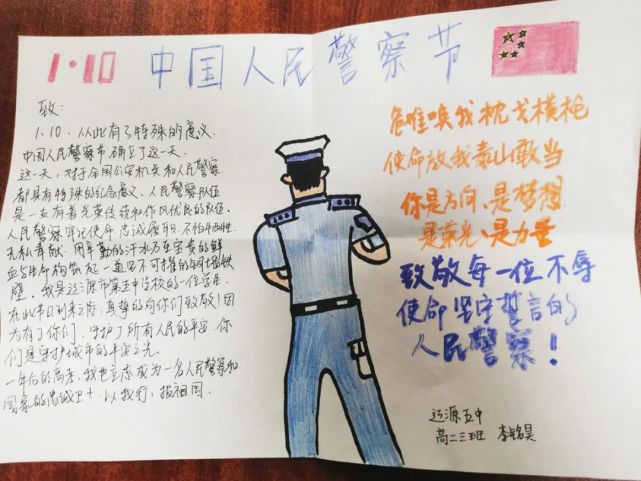 1·10 中国人民警察节
致:
1.10.从此有了特殊的意义.
中国人民警察节确立了这一天.
这一天,对于全国公安机关和人民警察
都具有特殊的纪念意义.人民警察队伍
是一支有着光荣传统和作风优良的队伍.
人民警察牢记使命忠诚履职.不怕牺牲.
无私奉献.用辛勤的汗水乃至宝贵的鲜
血与生命构筑起一道坚不可摧的钢铁
壁.我是辽源市第五中学校的一位学生.
在此节日到来之际,真挚的向你们致敬!因
为有了你们,守护了所有人民的平安.你
们是守护城市的平安之光.
一年后的高考,我也立志成为一名人民警察和
国家的忠诚卫士,以我行,报祖国.
危难唤我枕戈横枪
使命放我泰山敢当
你是方向、是梦想
是荣光、是力量
致敬每一位不辱
使命坚守誓言的
人民警察!
辽源五中
高二三班 李铭昊